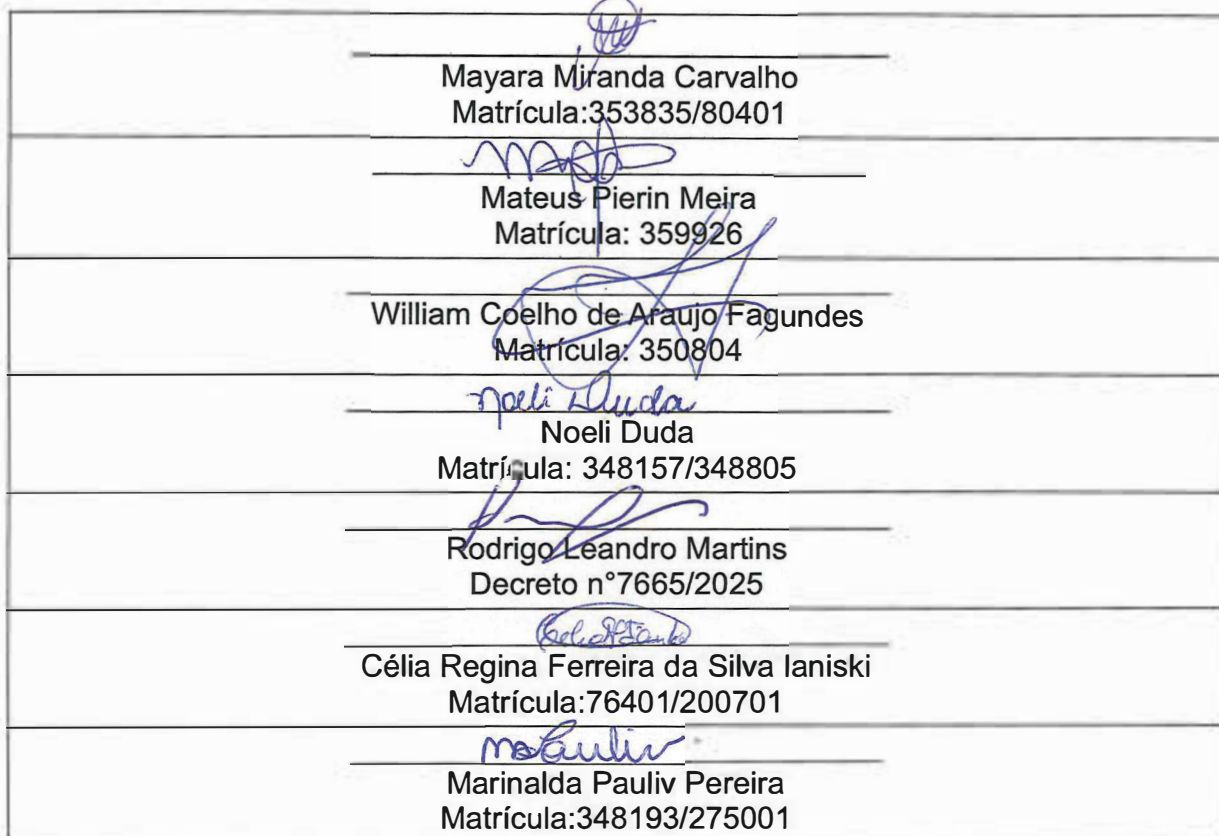 Mayara Miranda Carvalho
Matrícula:353835/80401
Mateus Pierin Meira
Matrícula: 359926
William Coelho de Araujo Fagundes
Matrícula: 350804
Noeli Duda
Noeli Duda
Matrícula: 348157/348805
Rodrigo Leandro Martins
Decreto n°7665/2025
Célia Regina Ferreira da Silva Ianiski
Matrícula:76401/200701
Marinalda Pauliv Pereira
Matrícula:348193/275001